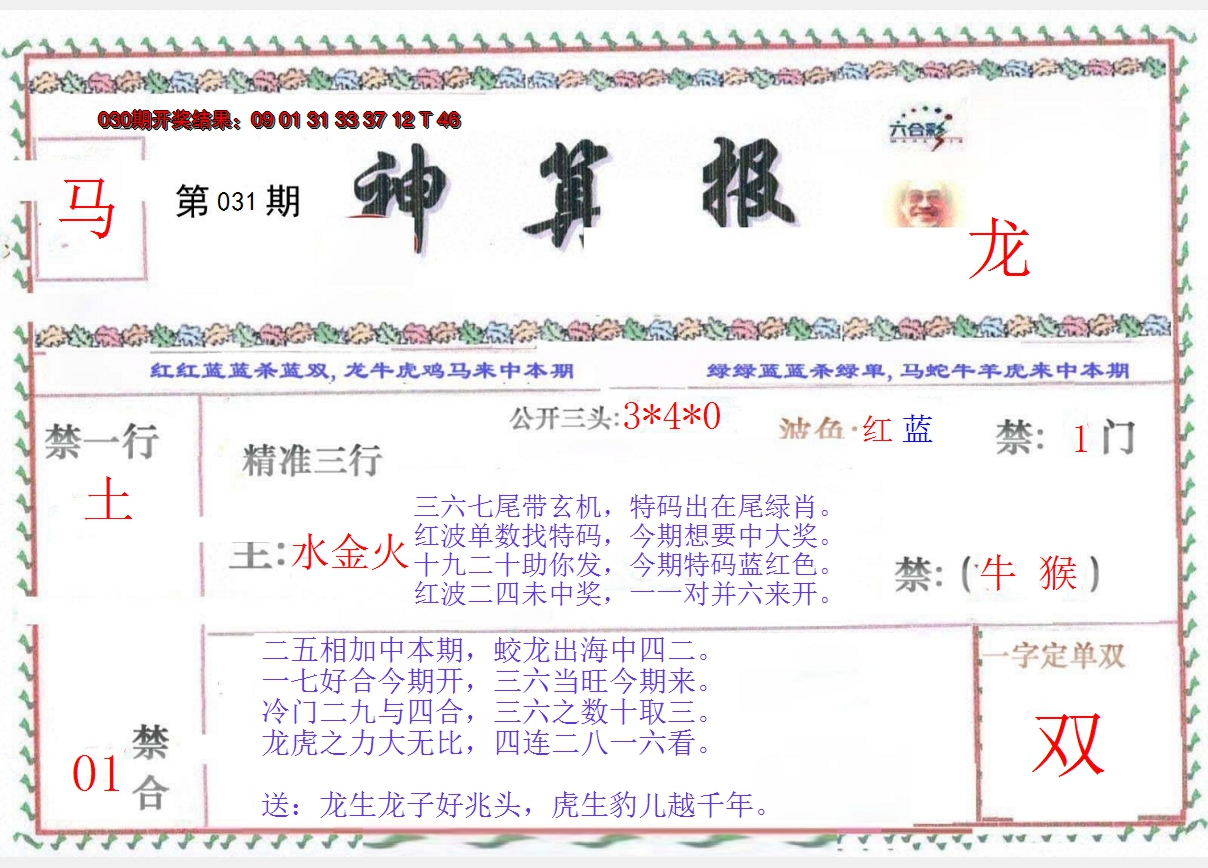 030期开奖结果：09 01 31 33 37 12 T 46
六合彩
马
第 031 期
神 算 报
龙
红红蓝蓝杀蓝双, 龙牛虎鸡马来中本期
绿绿蓝蓝杀绿单, 马蛇牛羊虎来中本期
公开三头: 3*4*0
波色: 红 蓝
禁一行
土
精准三行
禁: 1 门
主: 水金火
三六七尾带玄机，特码出在尾绿肖。
红波单数找特码，今期想要中大奖。
十九二十助你发，今期特码蓝红色。
红波二四未中奖，一一对并六来开。
禁: ( 牛 猴 )
二五相加中本期，蛟龙出海中四二。
一七好合今期开，三六当旺今期来。
冷门二九与四合，三六之数十取三。
龙虎之力大无比，四连二八一六看。
送：龙生龙子好兆头，虎生豹儿越千年。
一字定单双
双
01 禁合